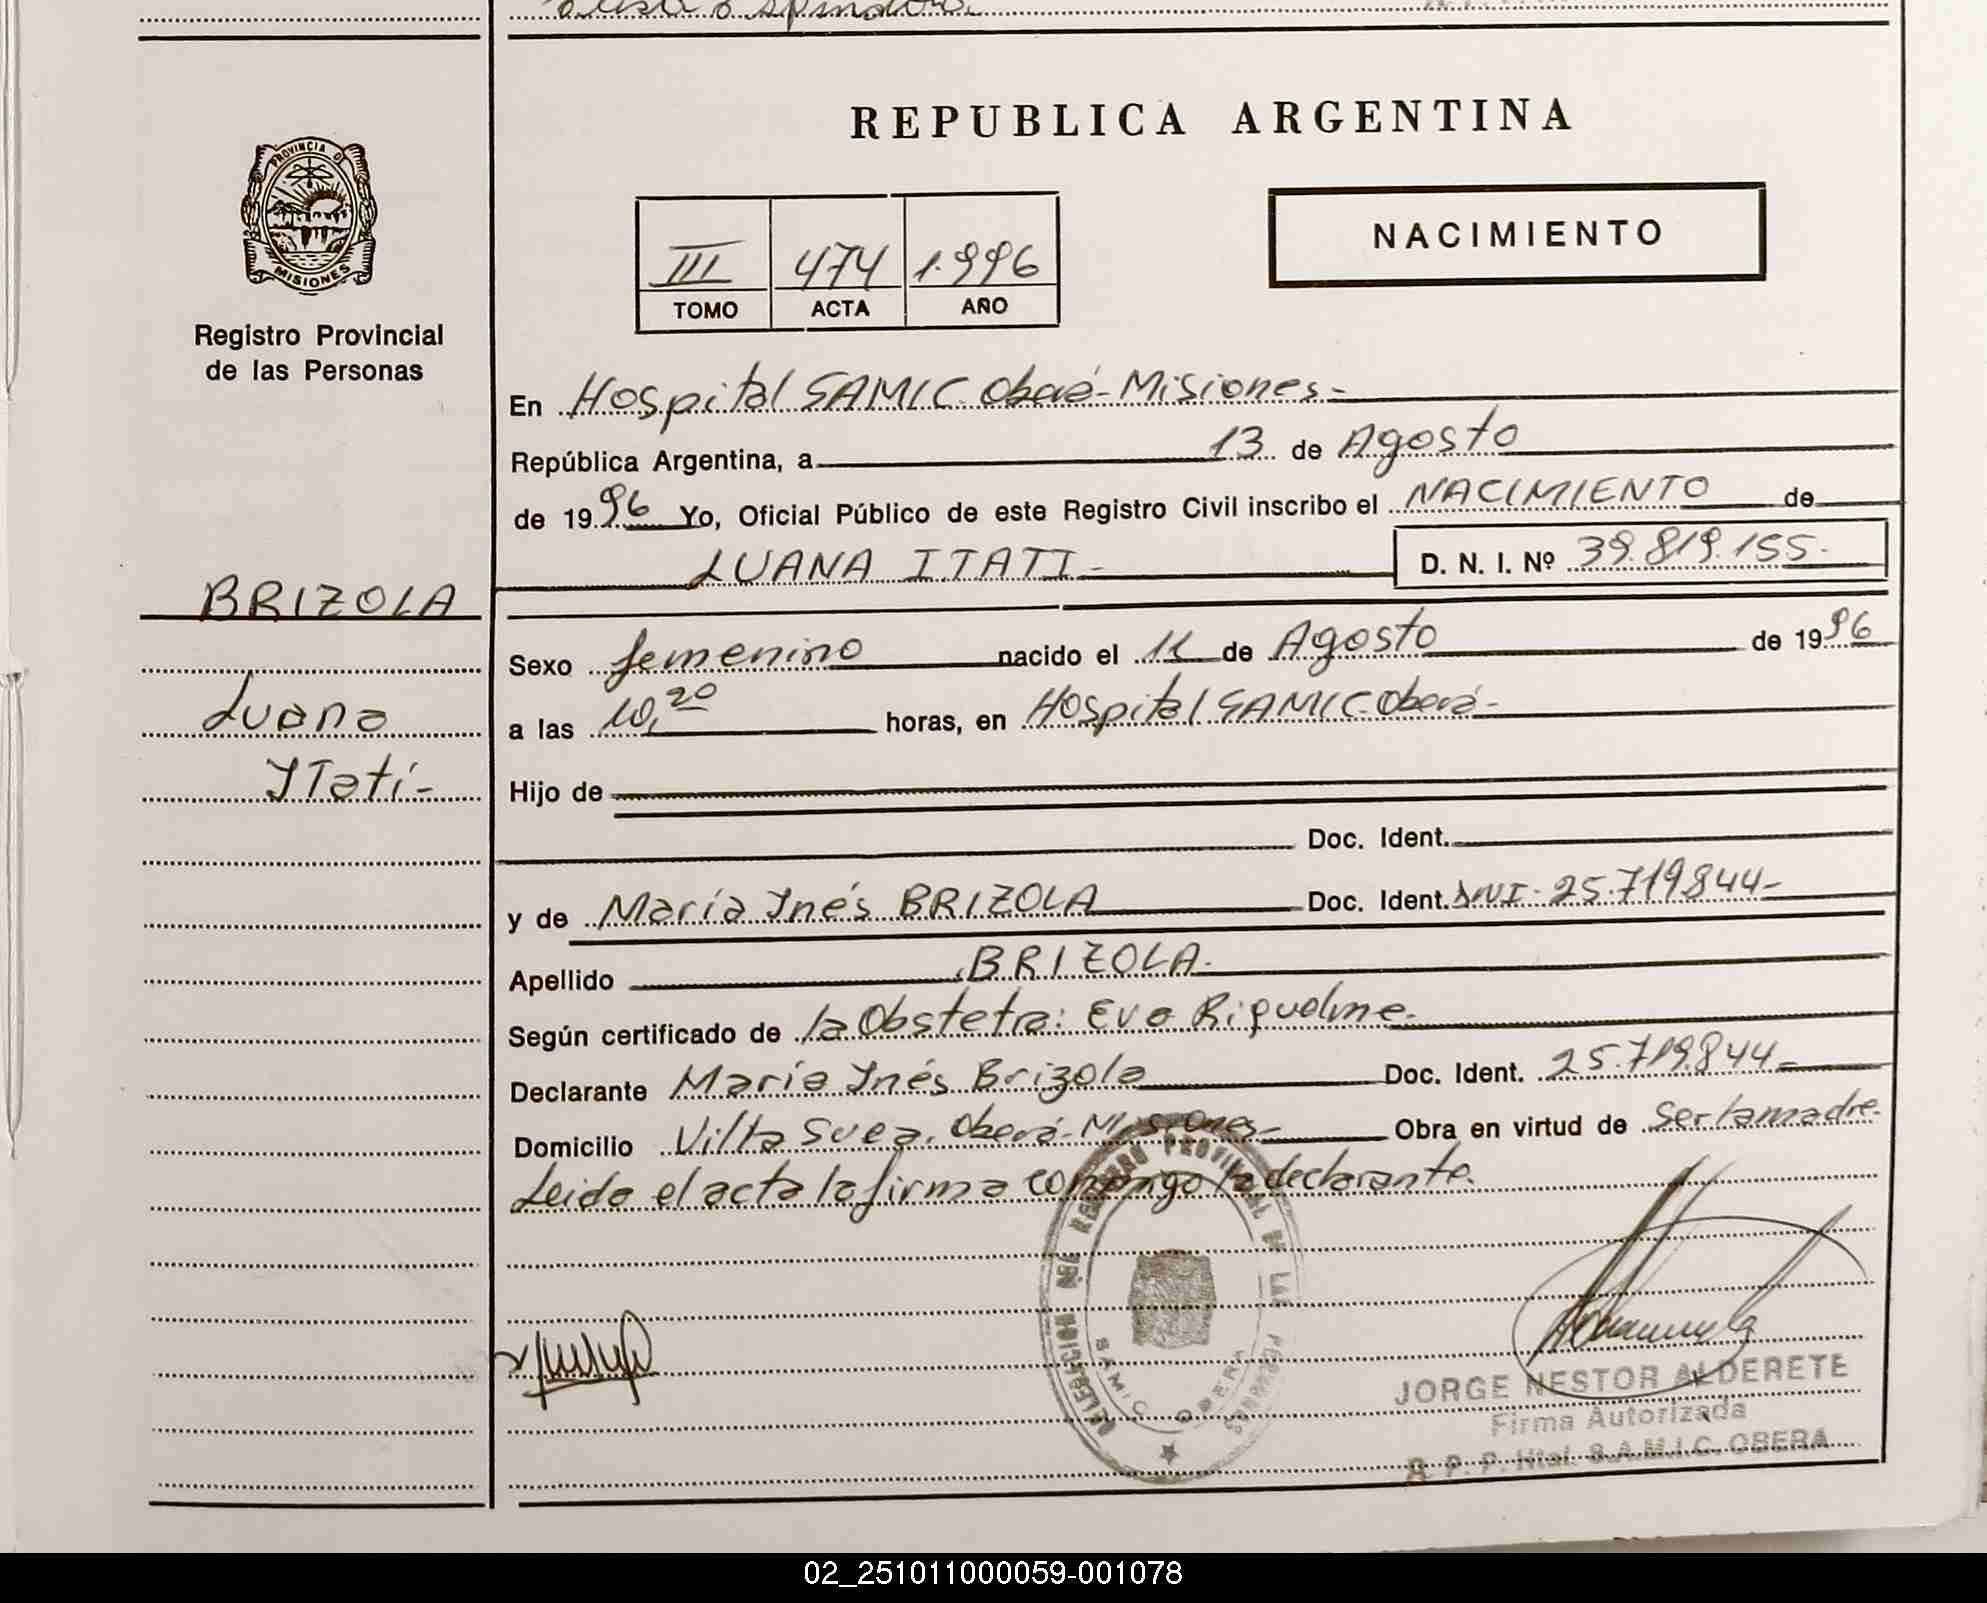 REPUBLICA ARGENTINA
PROVINCIA DE
MISIONES
Registro Provincial
de las Personas
NACIMIENTO
III 474 1.996
TOMO ACTA AÑO
En Hospital SAMIC. Oberá-Misiones-
República Argentina, a 13 de Agosto
de 1996 Yo, Oficial Público de este Registro Civil inscribo el NACIMIENTO de
LUANA ITATI- D. N. I. Nº 39.819.155-
BRIZOLA
Luana
ITatí-
Sexo femenino nacido el 11 de Agosto de 1996
a las 10,20 horas, en Hospital SAMIC-Oberá-
Hijo de
Doc. Ident.
y de María Inés BRIZOLA Doc. Ident. DNI-25.719.844-
Apellido BRIZOLA.
Según certificado de la Obstetra: Eva Riquelme.
Declarante María Inés Brizola Doc. Ident. 25.719.844-
Domicilio Villa Svea. Oberá-Misiones- Obra en virtud de ser la madre.
Leida el acta la firma conmigo la declarante.
DELEGACION DEL REGISTRO PROVINCIAL DE LAS PERSONAS
SAMIC OBERA
JORGE NESTOR ALDERETE
Firma Autorizada
R. P. P. Htal. S.A.M.I.C. OBERA
02_251011000059-001078